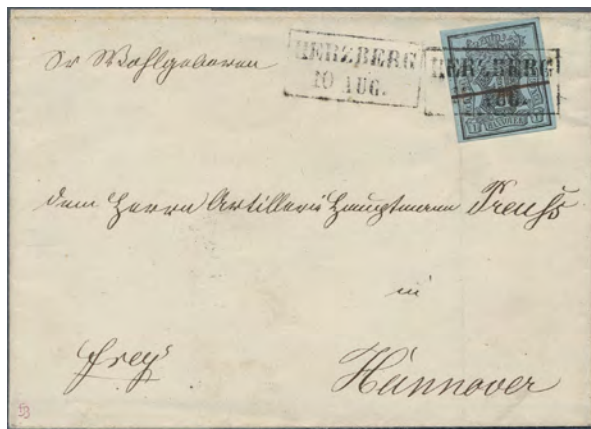 Sr Wohlgeboren
HERZBERG
10 AUG.
HERZBERG
AUG.
dem Herrn Artillerie Hauptmann Preuss
in
frey
Hannover